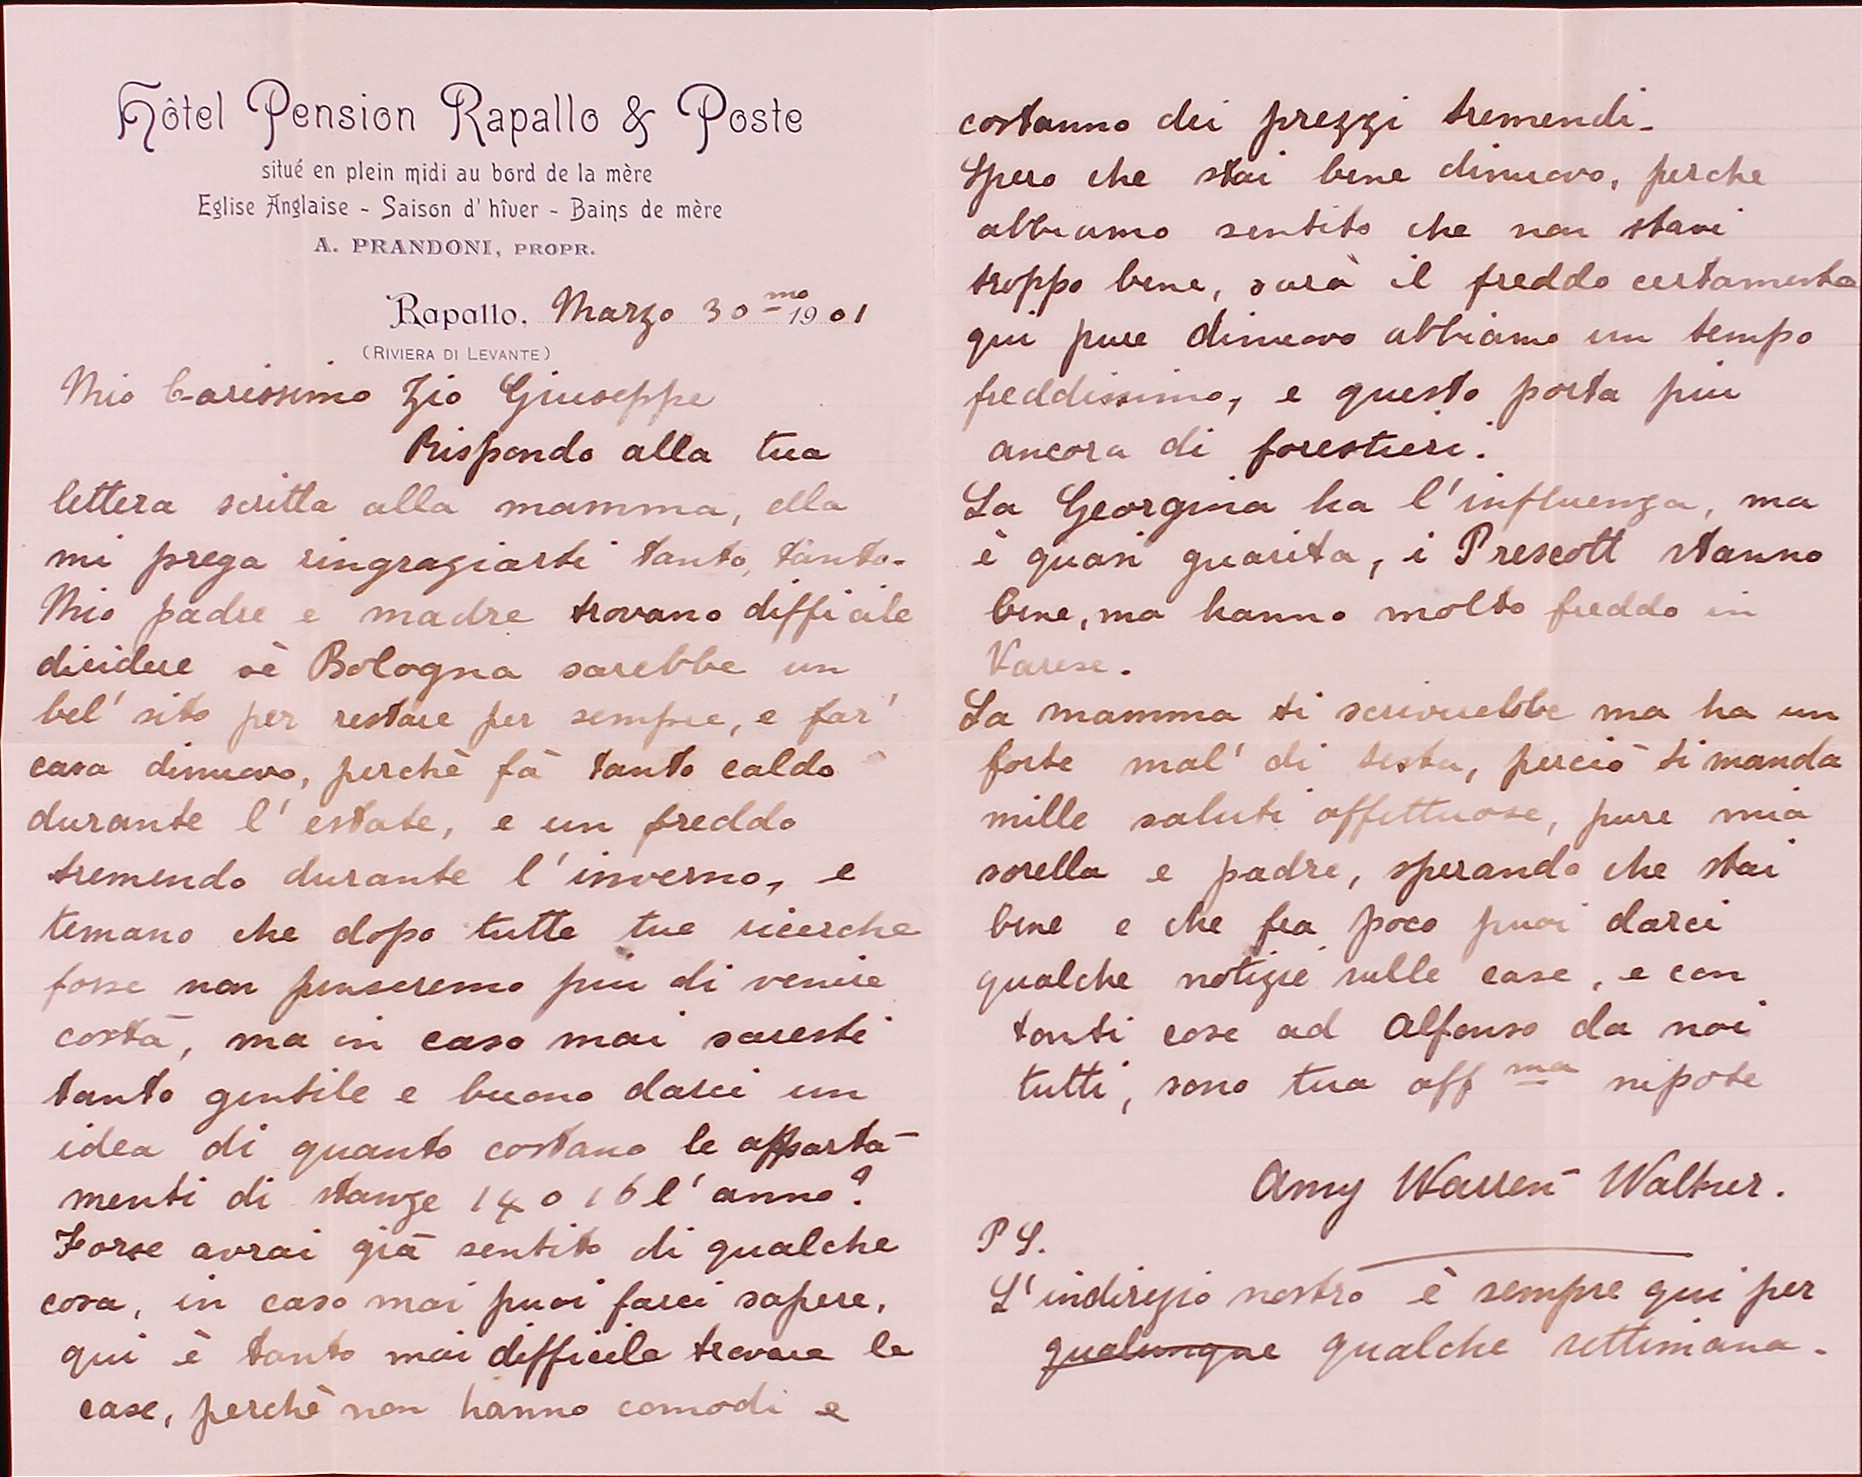 Hôtel Pension Rapallo & Poste
situé en plein midi au bord de la mère
Eglise Anglaise - Saison d'hîver - Bains de mère
A. PRANDONI, PROPR.
Rapallo, Marzo 30 mo 1901
(RIVIERA DI LEVANTE)
Mio Carissimo Zio Giuseppe
Rispondo alla tua
lettera scritta alla mamma, ella
mi prega ringraziarti tanto, tanto.
Mio padre e madre trovano difficile
dicidere sè Bologna sarebbe un
bel' sito per restare per sempre, e far'
casa dinuovo, perchè fà tanto caldo
durante l'estate, e un freddo
tremendo durante l'inverno, e
temano che dopo tutte tue ricerche
forse non penseremo piu di venire
costà, ma in caso mai saresti
tanto gentile e buono darci un
idea di quanto costano le apparta-
menti di stanze 14 o 16 l'anno?
Forse avrai già sentito di qualche
cosa, in caso mai puoi farci sapere,
qui è tanto mai difficile trovare le
case, perchè non hanno comodi e
costanno dei prezzi tremendi.
Spero che stai bene dinuovo, perche
abbiamo sentito che non stavi
troppo bene, sarà il freddo certamente
qui pure dinuovo abbiamo un tempo
freddissimo, e questo porta piu
ancora di forestieri.
La Georgina ha l'influenza, ma
è quasi guarita, i Prescott stanno
bene, ma hanno molto freddo in
Varese.
La mamma ti scriverebbe ma ha un
forte mal' di testa, perciò ti manda
mille saluti affettuose, pure mia
sorella e padre, sperando che stai
bene e che fra poco puoi darci
qualche notizie sulle case, e con
tanti cose ad Alfonso da noi
tutti, sono tua aff ma nipote
Amy Warren - Walker.
P S.
L'indirizio nostro è sempre qui per
qualunque qualche settimana.